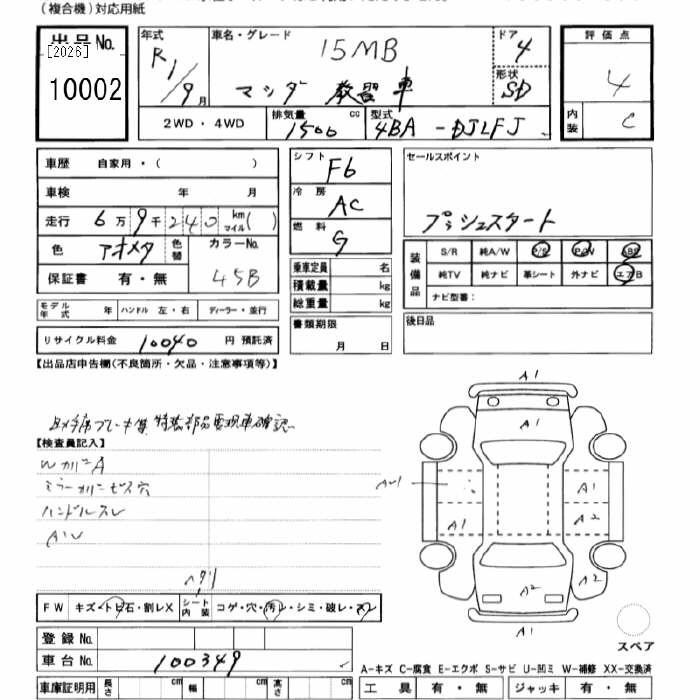 (複合機)対応用紙
出品No.
[2026]
10002
年式
R1/9月
車名・グレード
15MB
マツダ 教習車
ドア
4
形状
SD
2WD・4WD
排気量
1500
cc
型式
4BA-DJLFJ
評価点
4
内装
C
車歴 自家用・( )
車検 年 月
走行 6万9千240 km マイル( )
色 アオメタ 色替 カラーNo. 45B
保証書 有・無
モデル年式 年 ハンドル 左・右 ディーラー・並行
リサイクル料金 10040 円 預託済
シフト
F6
冷房
AC
燃料
G
乗車定員 名
積載量 kg
総重量 kg
書類期限
月 日
セールスポイント
プッシュスタート
装備品
S/R 純A/W P/S P/W ABS
純TV 純ナビ 革シート 外ナビ エアB
ナビ型番:
後日品
【出品店申告欄(不良箇所・欠品・注意事項等)】
助手席ブレーキ等 特装部品要現車確認
【検査員記入】
Wガラス
ミラーカバービス穴
ハンドルスレ
AW
A1
A1
A1
A1
A2
A1
A2
A2
A1
ヘタリ
FW キズ・トビ石・割レX シート内装 コゲ・穴・汚レ・シミ・破レ・スレ
登録No.
車台No. 100349
車庫証明用 長さ cm 幅 cm 高さ cm
スペア
A-キズ C-腐食 E-エクボ S-サビ U-凹ミ W-補修 XX-交換済
工具 有・無 ジャッキ 有・無